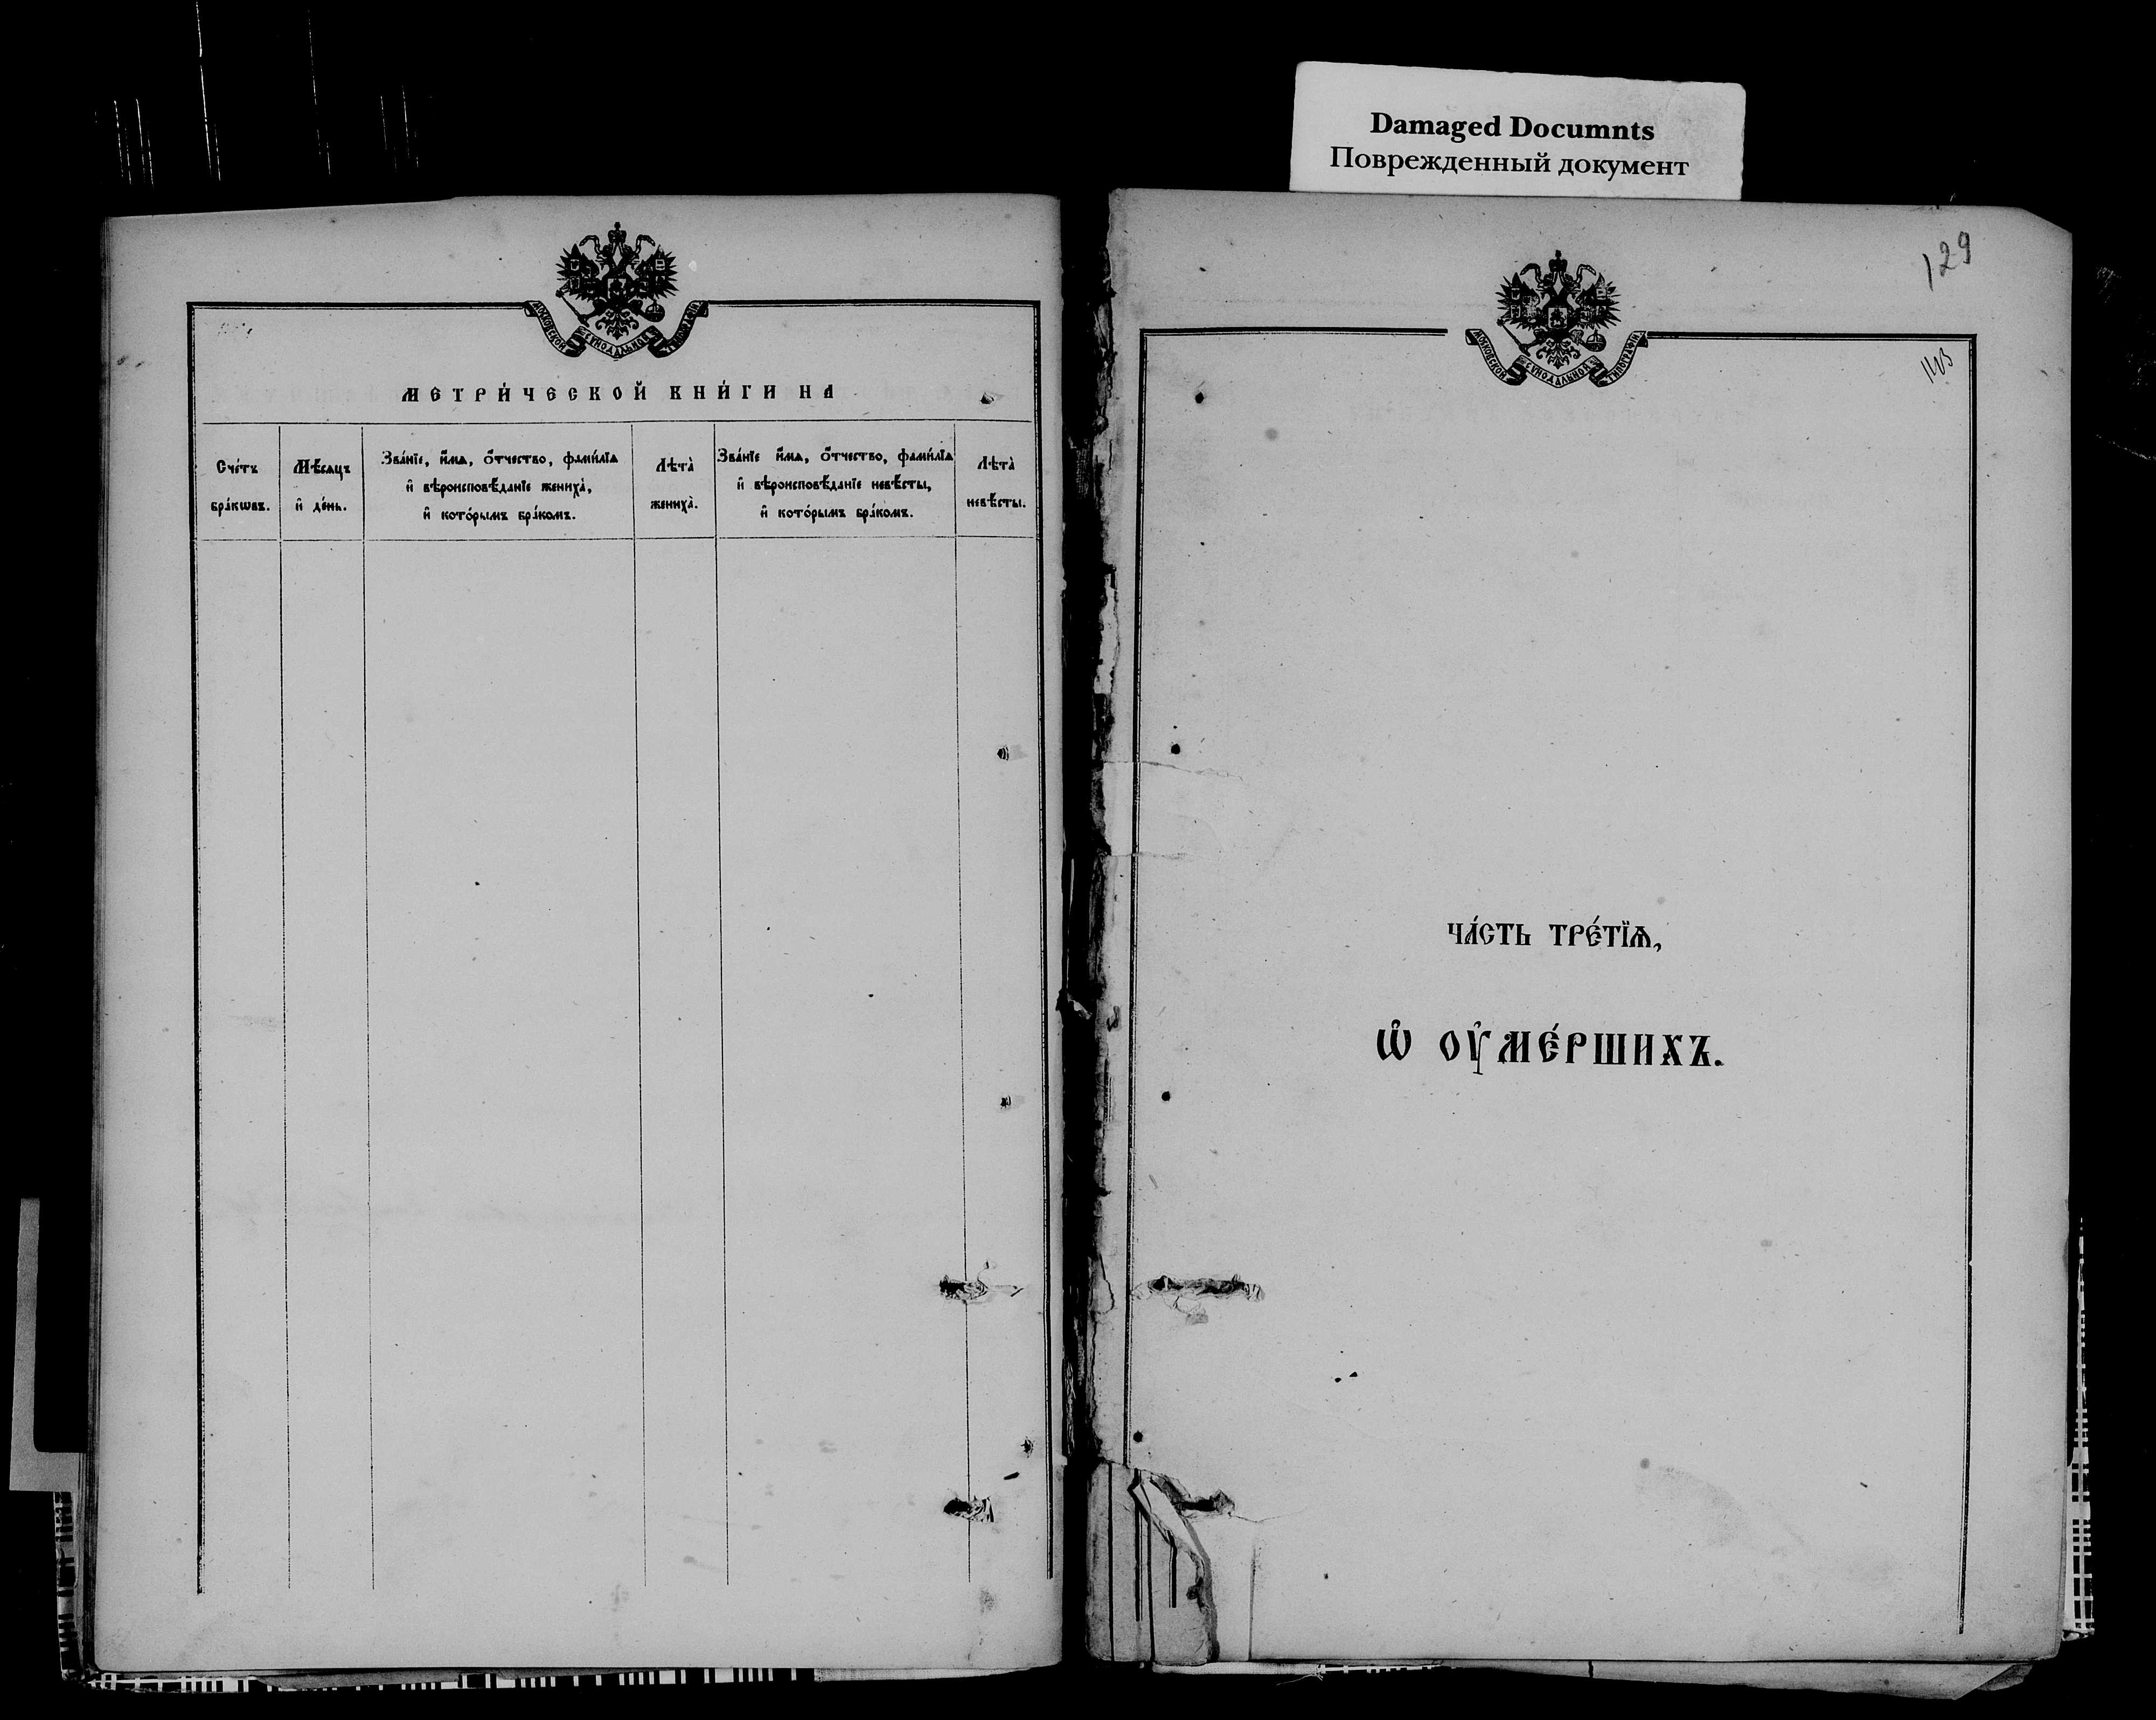 Damaged Documnts
Поврежденный документ
МОСКОВСКОЙ СѴНОДАЛЬНОЙ ТИПОГРАФІИ
МЕТРИ́ЧЕСКОЙ КНИ́ГИ НА
Сче́тъ бра́кѡвъ.
Мѣ́сяцъ и҆ де́нь.
Зва́нїе, и҆́мѧ, ѻ҆́тчество, фами́лїѧ
и҆ вѣроисповѣ́данїе жениха̀,
и҆ кото́рымъ бра́комъ.
Лѣта̀ жениха̀.
Зва́нїе и҆́мѧ, ѻ҆́тчество, фами́лїѧ
и҆ вѣроисповѣ́данїе невѣ́сты,
и҆ кото́рымъ бра́комъ.
Лѣта̀ невѣ́сты.
129
МОСКОВСКОЙ СѴНОДАЛЬНОЙ ТИПОГРАФІИ
ЧА́СТЬ ТРЕ́ТЇѦ,
Ѡ҆ ОУ҆МЕ́РШИХЪ.